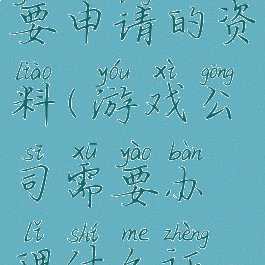 要申请的资
liào yóu xì gōng
料(游戏公
sī xū yào bàn
司需要办
lǐ shí me zhèng
理什么证